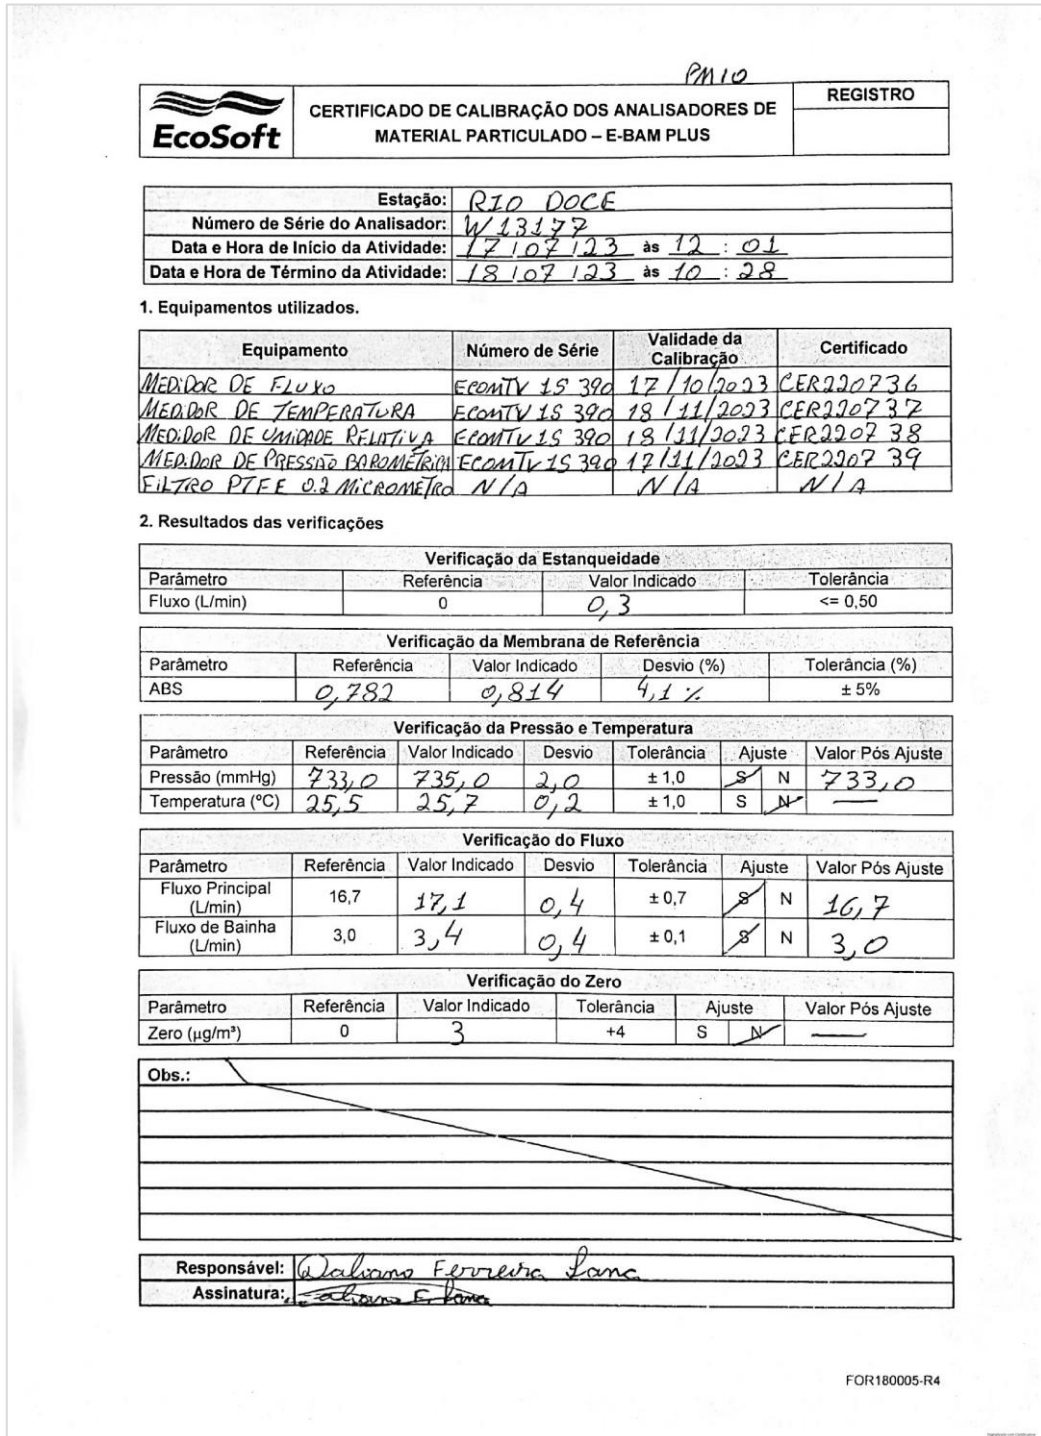 PM10
EcoSoft
CERTIFICADO DE CALIBRAÇÃO DOS ANALISADORES DE
MATERIAL PARTICULADO – E-BAM PLUS
REGISTRO
Estação: RIO DOCE
Número de Série do Analisador: W13177
Data e Hora de Início da Atividade: 17/07/23 às 12:01
Data e Hora de Término da Atividade: 18/07/23 às 10:28
1. Equipamentos utilizados.
Equipamento Número de Série Validade da Calibração Certificado
MEDIDOR DE FLUXO ECOMTV 1S 390 17/10/2023 CER220736
MEDIDOR DE TEMPERATURA ECOMTV 1S 390 18/11/2023 CER220737
MEDIDOR DE UMIDADE RELATIVA ECOMTV 1S 390 18/11/2023 CER220738
MEDIDOR DE PRESSÃO BAROMÉTRICA ECOMTV 1S 390 17/11/2023 CER220739
FILTRO PTFE 0.2 MICROMETRO N/A N/A N/A
2. Resultados das verificações
Verificação da Estanqueidade
Parâmetro Referência Valor Indicado Tolerância
Fluxo (L/min) 0 0,3 <= 0,50
Verificação da Membrana de Referência
Parâmetro Referência Valor Indicado Desvio (%) Tolerância (%)
ABS 0,782 0,814 4,1 % ± 5%
Verificação da Pressão e Temperatura
Parâmetro Referência Valor Indicado Desvio Tolerância Ajuste Valor Pós Ajuste
Pressão (mmHg) 733,0 735,0 2,0 ± 1,0 S N 733,0
Temperatura (ºC) 25,5 25,7 0,2 ± 1,0 S N —
Verificação do Fluxo
Parâmetro Referência Valor Indicado Desvio Tolerância Ajuste Valor Pós Ajuste
Fluxo Principal (L/min) 16,7 17,1 0,4 ± 0,7 S N 16,7
Fluxo de Bainha (L/min) 3,0 3,4 0,4 ± 0,1 S N 3,0
Verificação do Zero
Parâmetro Referência Valor Indicado Tolerância Ajuste Valor Pós Ajuste
Zero (µg/m³) 0 3 +4 S N —
Obs.:
Responsável: Ferreira Lana
Assinatura:
FOR180005-R4